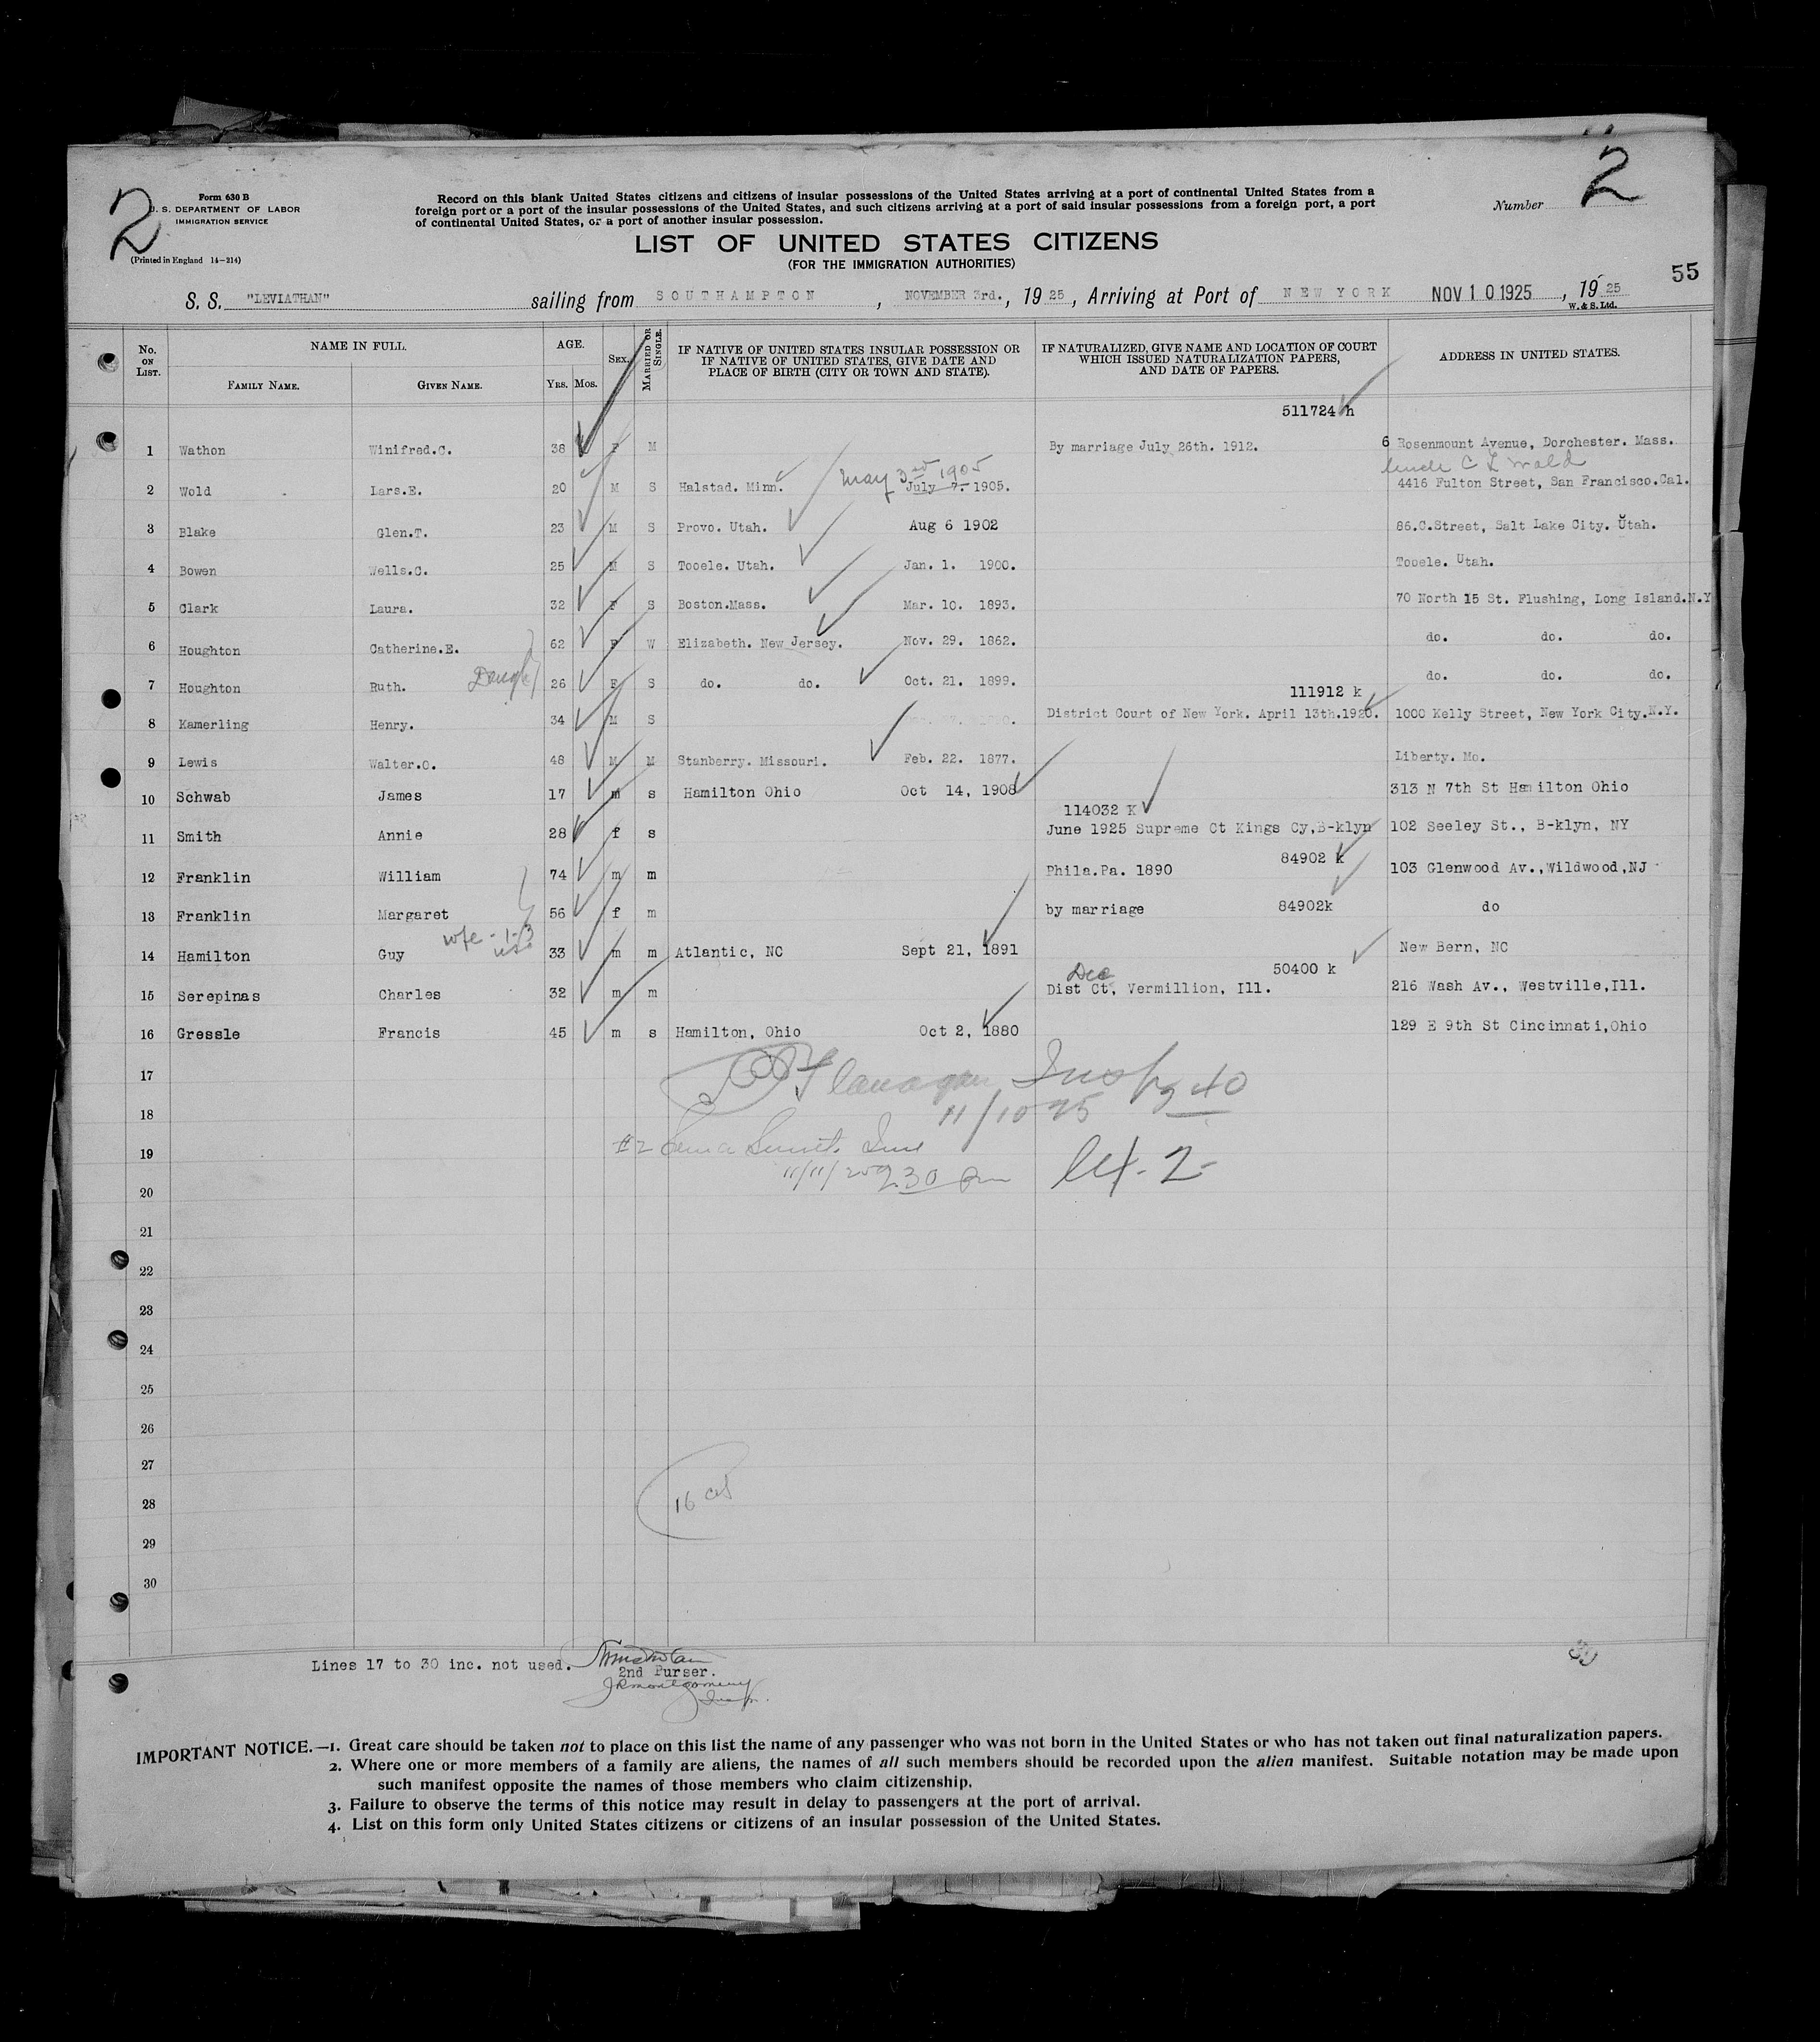 2
2
Form 630 B
U. S. DEPARTMENT OF LABOR
IMMIGRATION SERVICE
(Printed in England 14-214)
Record on this blank United States citizens and citizens of insular possessions of the United States arriving at a port of continental United States from a
foreign port or a port of the insular possessions of the United States, and such citizens arriving at a port of said insular possessions from a foreign port, a port
of continental United States, or a port of another insular possession.
Number
LIST OF UNITED STATES CITIZENS
(FOR THE IMMIGRATION AUTHORITIES)
55
S. S. "LEVIATHAN" sailing from SOUTHAMPTON, NOVEMBER 3rd., 1925, Arriving at Port of NEW YORK NOV 10 1925, 1925
W. & S. Ltd.
No. ON LIST.
NAME IN FULL.
FAMILY NAME. GIVEN NAME.
AGE.
YRS. MOS.
SEX.
MARRIED OR SINGLE.
IF NATIVE OF UNITED STATES INSULAR POSSESSION OR
IF NATIVE OF UNITED STATES, GIVE DATE AND
PLACE OF BIRTH (CITY OR TOWN AND STATE).
IF NATURALIZED, GIVE NAME AND LOCATION OF COURT
WHICH ISSUED NATURALIZATION PAPERS,
AND DATE OF PAPERS.
ADDRESS IN UNITED STATES.
511724 h
1 Wathon Winifred.C. 38 F M By marriage July 26th. 1912. 6 Rosenmount Avenue, Dorchester. Mass.
May 3rd 1905
2 Wold Lars.E. 20 M S Halstad. Minn. July 7. 1905. 4416 Fulton Street, San Francisco.Cal.
3 Blake Glen.T. 23 M S Provo. Utah. Aug 6 1902 86.C.Street, Salt Lake City. Utah.
4 Bowen Wells.C. 25 M S Tooele. Utah. Jan. 1. 1900. Tooele. Utah.
5 Clark Laura. 32 F S Boston.Mass. Mar. 10. 1893. 70 North 15 St. Flushing, Long Island.N.Y
6 Houghton Catherine.E. 62 F W Elizabeth. New Jersey. Nov. 29. 1862. do. do. do.
7 Houghton Ruth. Daugh 26 F S do. do. Oct. 21. 1899. do. do. do.
111912 k
8 Kamerling Henry. 34 M S District Court of New York. April 13th.1920. 1000 Kelly Street, New York City.N.Y.
9 Lewis Walter.O. 48 M M Stanberry. Missouri. Feb. 22. 1877. Liberty. Mo.
10 Schwab James 17 m s Hamilton Ohio Oct 14, 1908 313 N 7th St Hamilton Ohio
114032 K
11 Smith Annie 28 f s June 1925 Supreme Ct Kings Cy,B-klyn 102 Seeley St., B-klyn, NY
84902 k
12 Franklin William 74 m m Phila.Pa. 1890 103 Glenwood Av.,Wildwood,NJ
13 Franklin Margaret 56 f m by marriage 84902k do
wfe - 1-3
14 Hamilton Guy 33 m m Atlantic, NC Sept 21, 1891 New Bern, NC
Dec 50400 k
15 Serepinas Charles 32 m m Dist Ct, Vermillion, Ill. 216 Wash Av., Westville,Ill.
16 Gressle Francis 45 m s Hamilton, Ohio Oct 2, 1880 129 E 9th St Cincinnati,Ohio
17
18
11/10 25
19
20
21
22
23
24
25
26
27
28
16
29
30
Lines 17 to 30 inc. not used.
2nd Purser.
JRMontgomery
Insp.
IMPORTANT NOTICE.—1. Great care should be taken not to place on this list the name of any passenger who was not born in the United States or who has not taken out final naturalization papers.
2. Where one or more members of a family are aliens, the names of all such members should be recorded upon the alien manifest. Suitable notation may be made upon
such manifest opposite the names of those members who claim citizenship.
3. Failure to observe the terms of this notice may result in delay to passengers at the port of arrival.
4. List on this form only United States citizens or citizens of an insular possession of the United States.